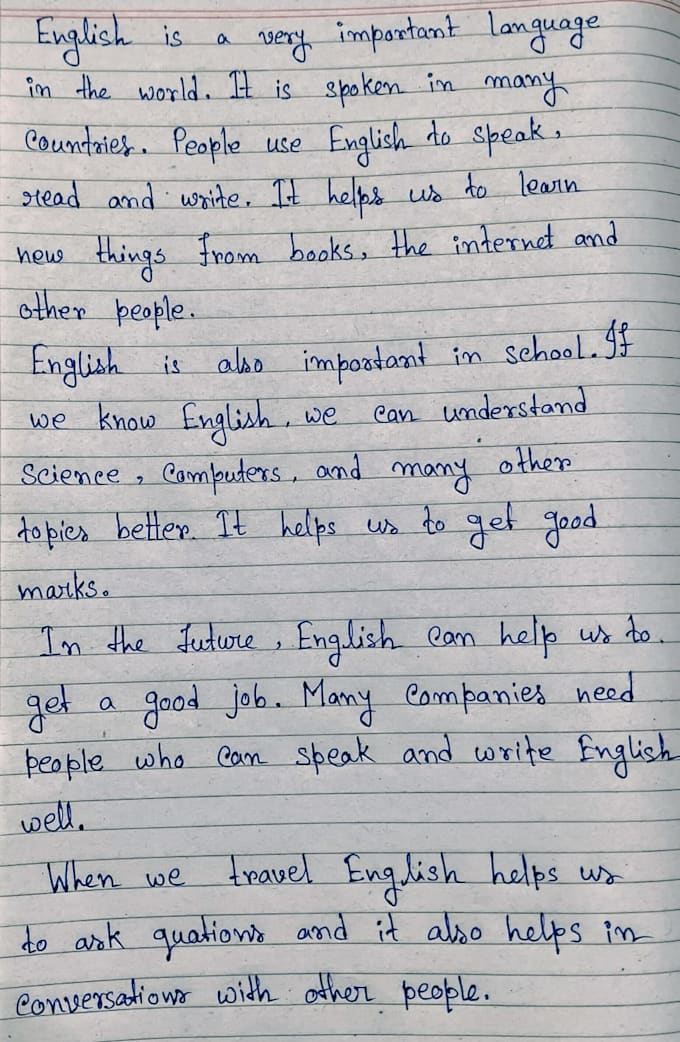 English is a very important language
in the world. It is spoken in many
Countries. People use English to speak,
read and write. It helps us to learn
new things from books, the internet and
other people.
English is also important in school. If
we know English, we can understand
Science, Computers, and many other
topics better. It helps us to get good
marks.
In the future, English can help us to
get a good job. Many Companies need
people who can speak and write English
well.
When we travel English helps us
to ask quations and it also helps in
Conversations with other people.